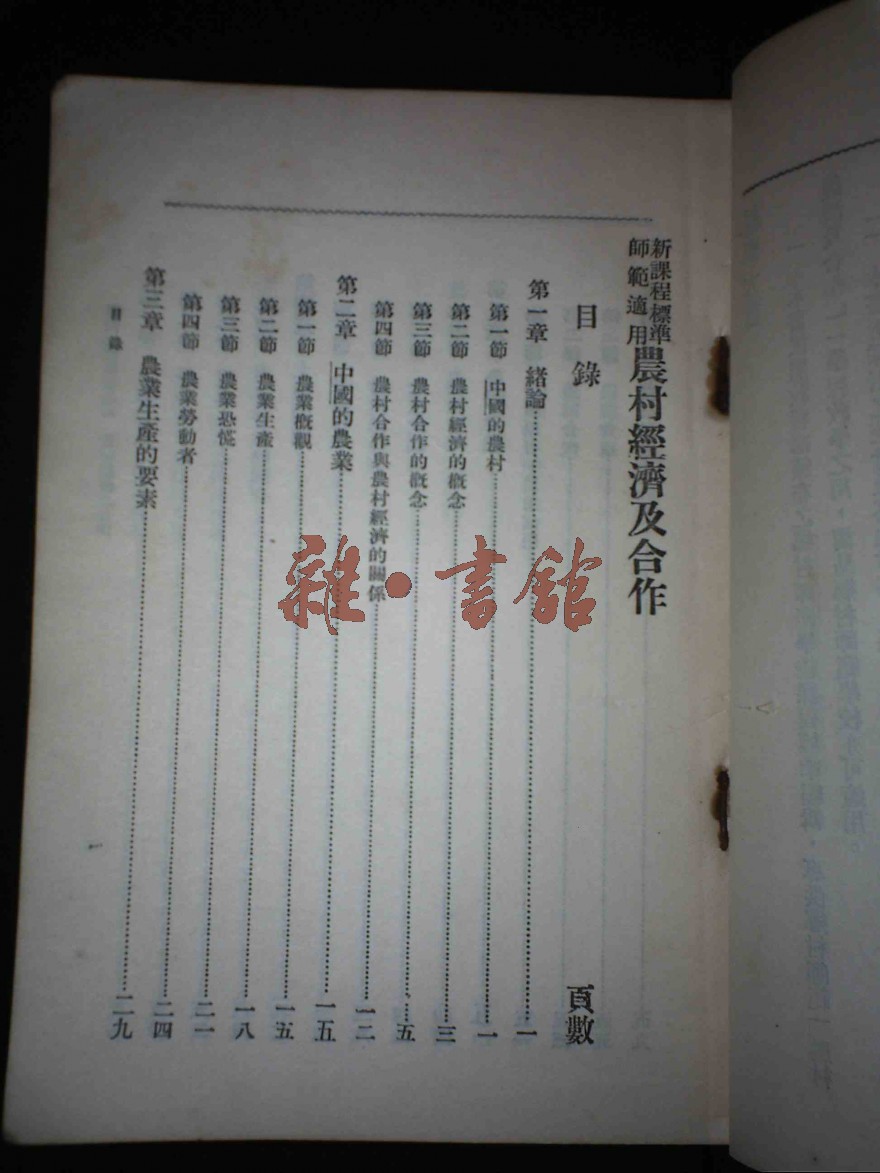 新課程標準
師範適用
農村經濟及合作
目錄 頁數
第一章 緒論……一
第一節 中國的農村……一
第二節 農村經濟的概念……三
第三節 農村合作的概念……五
第四節 農村合作與農村經濟的關係……一二
第二章 中國的農業……一五
第一節 農業概觀……一五
第二節 農業生產……一八
第三節 農業恐慌……二一
第四節 農業勞動者……二四
第三章 農業生產的要素……二九
目錄
雜·書館